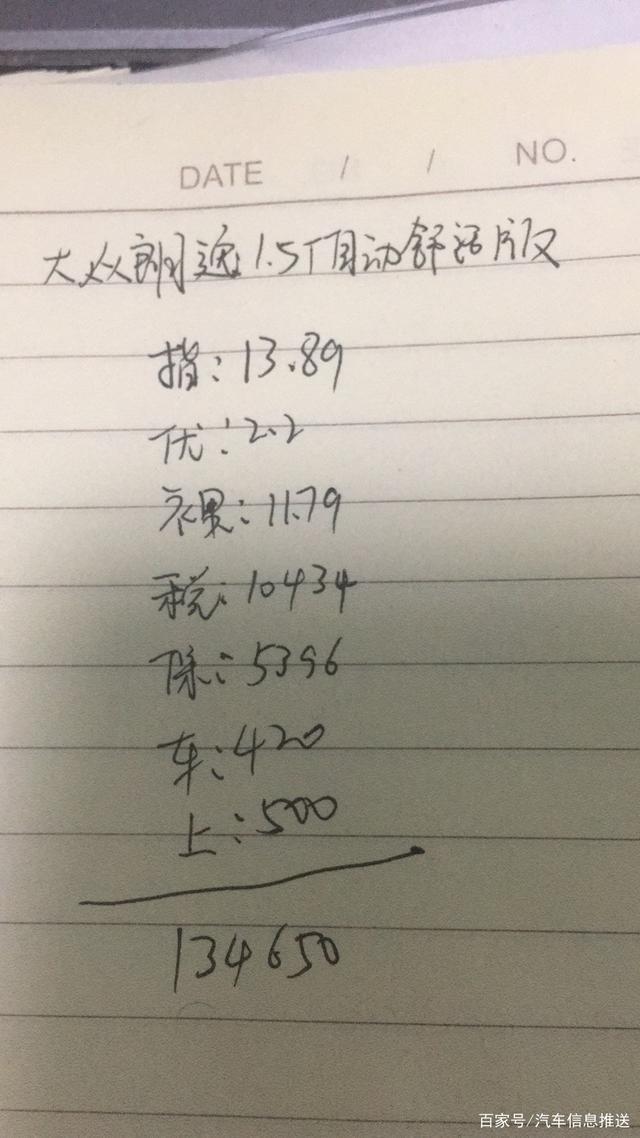 DATE / / NO.
大众朗逸1.5T自动舒适版
指:13.89
优:2.2
裸:11.79
税:10434
保:5396
车:420
上:500
134650
百家号/汽车信息推送